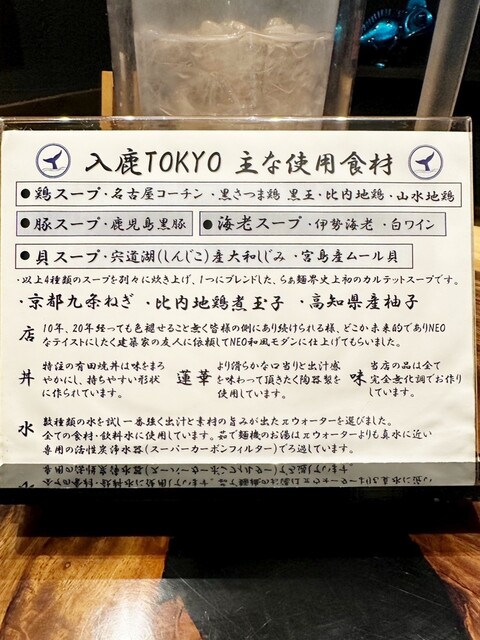 入鹿TOKYO 主な使用食材
●鶏スープ・名古屋コーチン・黒さつま鶏 黒王・比内地鶏・山水地鶏
●豚スープ・鹿児島黒豚
●海老スープ・伊勢海老・白ワイン
●貝スープ・宍道湖(しんじこ)産大和しじみ・宮島産ムール貝
・以上4種類のスープを別々に炊き上げ、1つにブレンドした、らぁ麺界史上初のカルテットスープです。
・京都九条ねぎ ・比内地鶏煮玉子 ・高知県産柚子
店 10年、20年経っても色褪せること無く皆様の側にあり続けられる様、どこか未来的でありNEO
なテイストにしたく建築家の友人に依頼してNEO和風モダンに仕上げてもらいました。
丼 特注の有田焼丼は味をまろ
やかにし、持ちやすい形状
に作られています。
蓮華 より滑らかな口当りと出汁感
を味わって頂きたく陶器製を
使用しています。
味 当店の品は全て
完全無化調でお作り
しています。
水 数種類の水を試し一番強く出汁と素材の旨みが出たπウォーターを選びました。
全ての食材・飲料水に使用しています。茹で麺機のお湯はπウォーターよりも真水に近い
専用の活性炭浄水器(スーパーカーボンフィルター)でろ過しています。